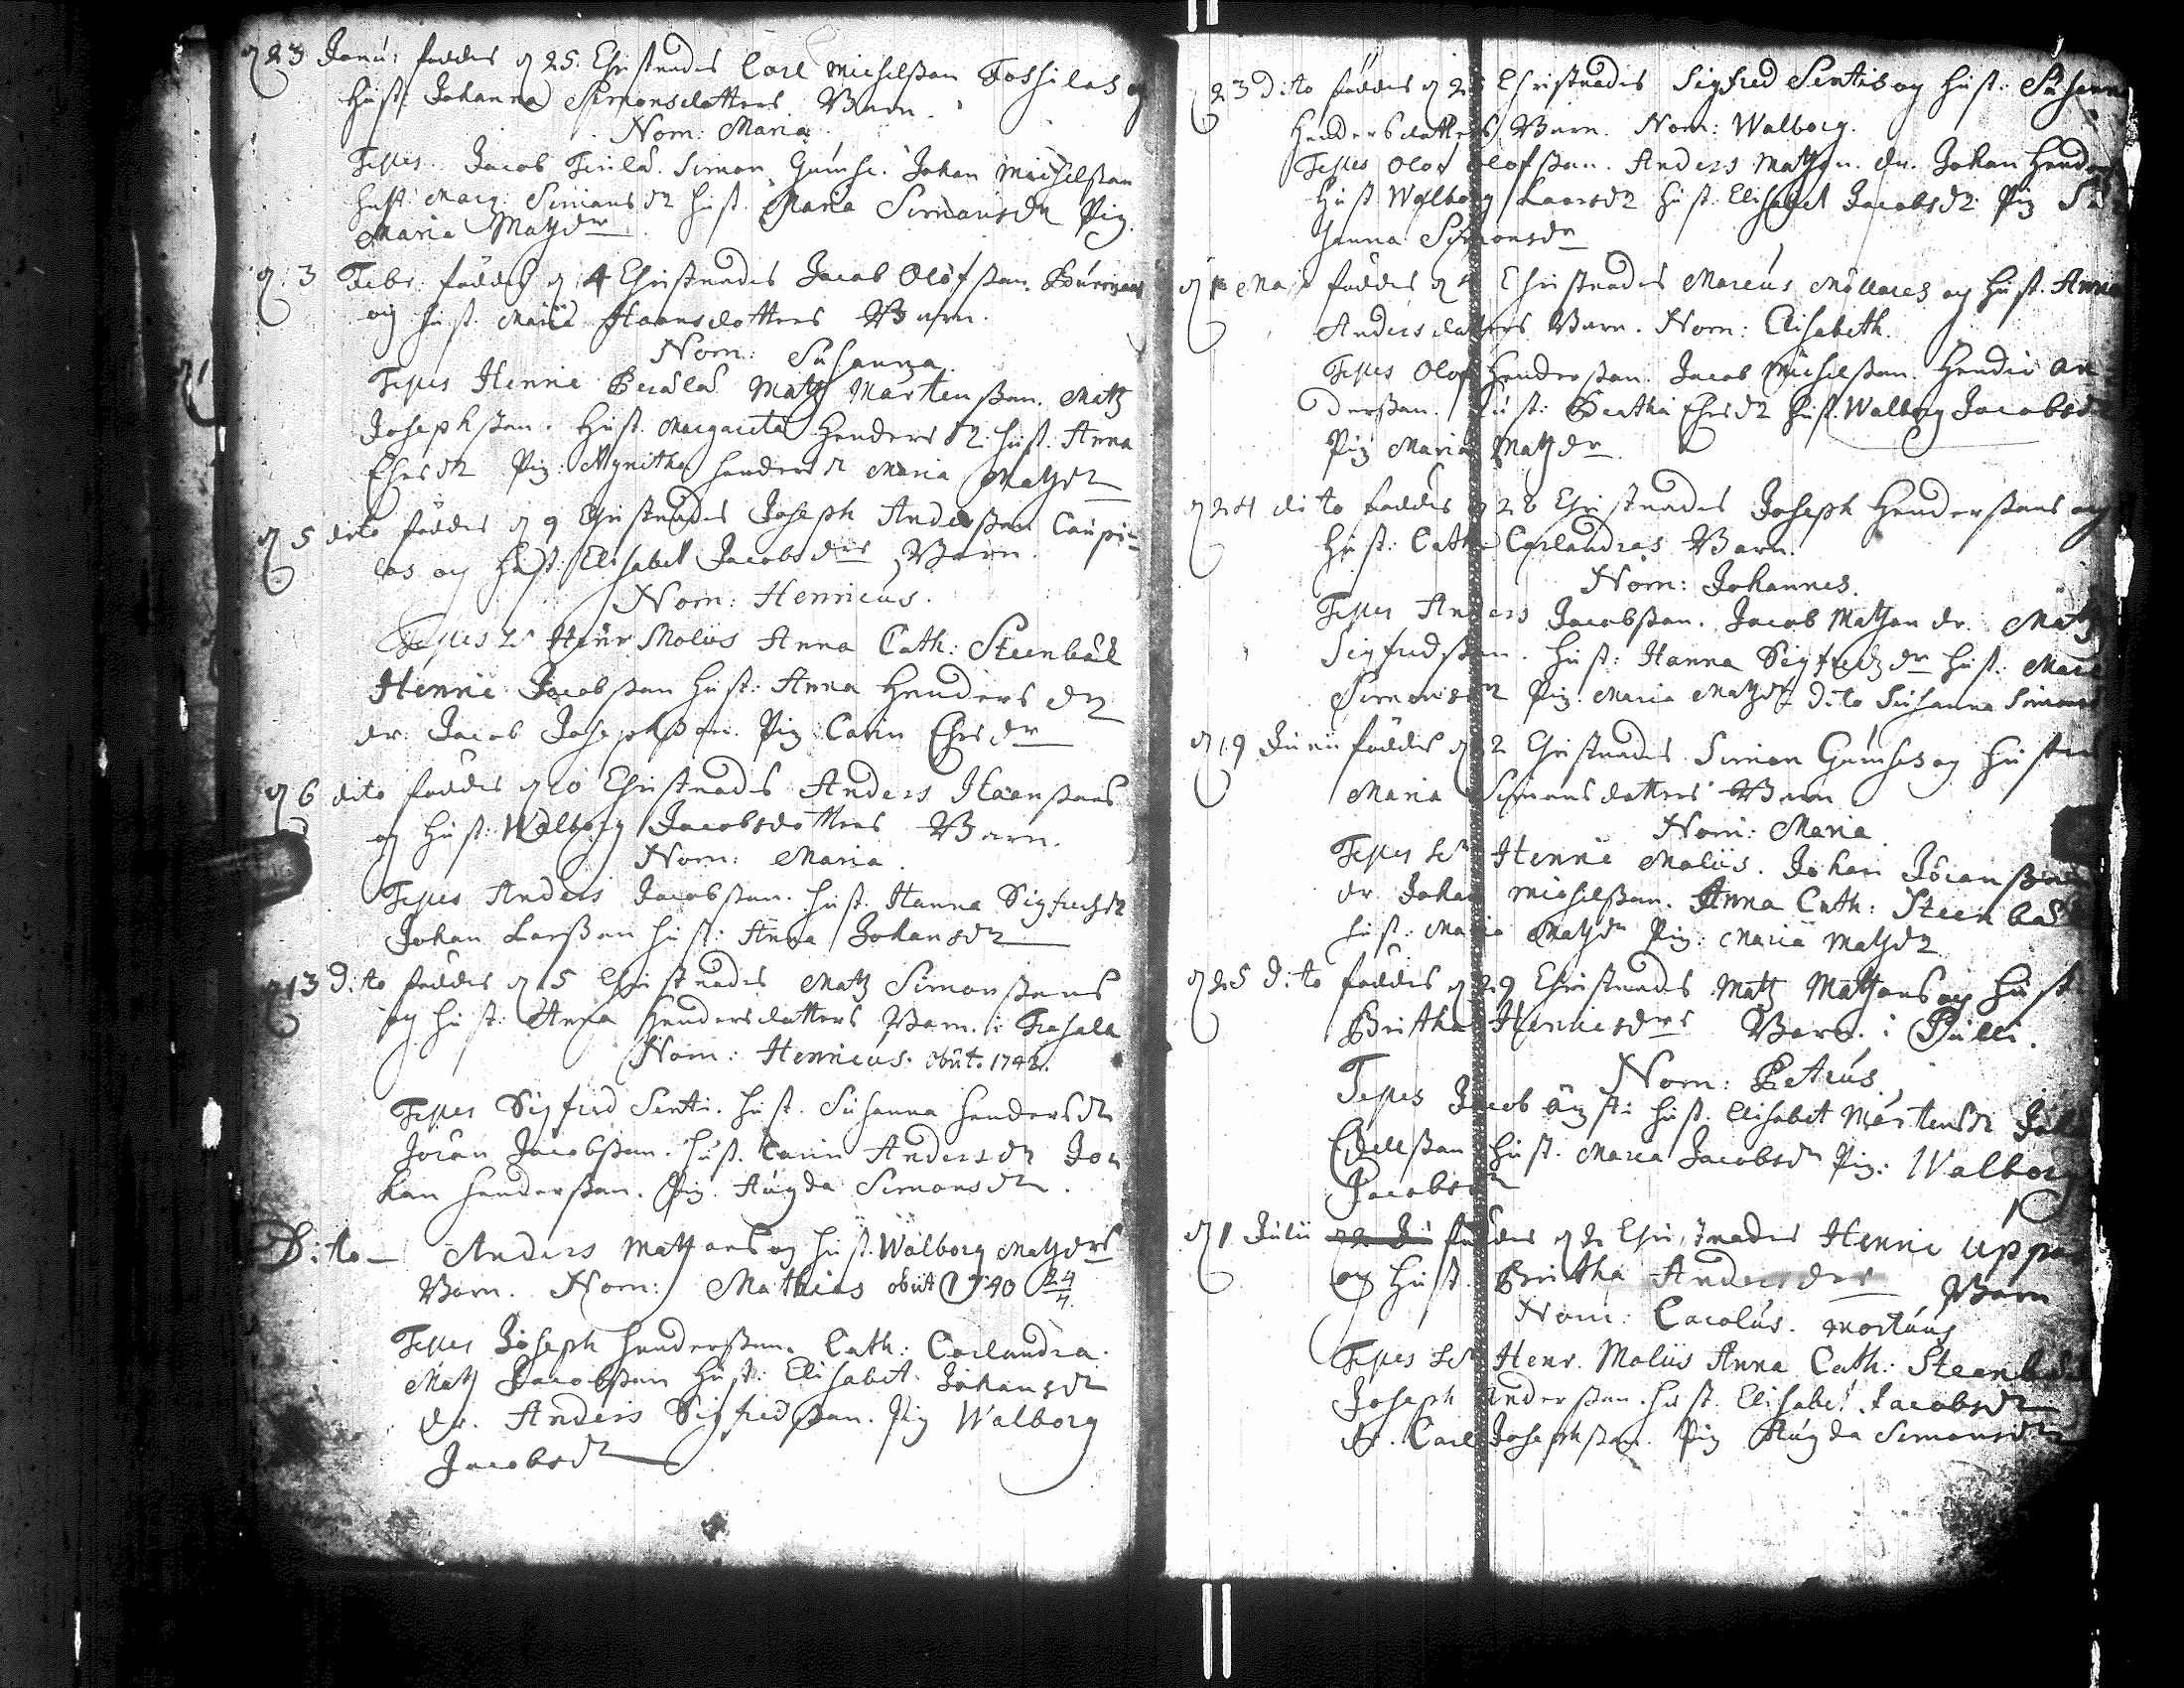 d 23 Janu: föddes d 25. Christnades Carl Michelßon Tossilas og
hust: Johanna Simonsdotters Barn.
Nom: Maria
Testes. Jacob Simon Gumse. Johan Michelßon
hust: Marg: Simonsdr hust. Maria Simonsdr Pig
Maria Matzdr
d. 3 Febr. föddes d 4 Christnades Jacob Olofßon
og hust. Maria Haansdotters Barn.
Nom: Susanna
Testes Henric Matz Mårtenßon. Matz
Josephßon. hust. Margareta Hendersdr. hust. Anna
Ehrsdr Pig: hendersdr Maria Matzdr
d 5 dito föddes d 9 Christnades Joseph Anderßon Caupi-
las og hust: Elisabet Jacobsdrs Barn.
Nom: Henricus.
Testes Hr Henr Molius Anna Cath: Steenbäck
Henric Jacobßon hust: Anna Hendersdr
dr. Jacob Josephßon. Pig: Carin Ehrsdr
d 6 dito föddes d 10 Christnades Anders Haanßons
og hust: Walborg Jacobsdotters Barn.
Nom: Maria.
Testes Anders Jacobßon. hust. Hanna Sigfredzdr
Johan Larßon hust: Anna Johansdr
d 13 Dito föddes d 15 Christnades Matz Simonßons
og hust: Anna Hendersdotters Barn. i
Nom: Henricus. obiit. 1742.
Testes Sigfred Senti. hust. Susanna hendersdr
Jöran Jacobßon. hust. Carin Andersdr Jo-
han henderßon. Pig. Augda Simonsdr.
Dito — Anders Matzons og hust. Walborg Matzdrs
Barn. Nom: Mathias obiit 1740 24/4.
Testes Joseph henderßon. Cath: Carlandra.
Matz Jacobßon hust: Elisabet. Johansdr
dr. Anders Sigfredßon. Pig Walborg
Jacobsdr
d 23 Dito föddes d 25 Christnades Sigfred Sentis og hust: Susanna
Hendersdotters Barn. Nom: Walborg.
Testes Olof Olofßon. Anders Matzon. dr. Johan
hust Walborg Laarsdr hust. Elisabet Jacobsdr Pig Su-
sanna Simonsdr
d Maji föddes d 4 Christnades Marcus Möllares og hust. Anna
Andersdotters Barn. Nom: Elisabeth.
Testes Olof Henderßon. Jacob Michelßon. Hendric An-
derßon. hust: Bertha Ehrsdr hust. Walborg Jacobsdr
Pig Maria Matzdr.
d 24 dito föddes d 28 Christnades Joseph Henderßons og
hust: Cath: Carlandras Barn.
Nom: Johannes.
Testes Anders Jacobßon. Jacob Matzon dr. Matz
Sigfredßon. hust: Hanna Sigfredzdr hust:
Simonsdr Pig: Maria Matzdr Dito Susanna
d 19 Junii föddes d 22 Christnades Simon Gumses og hust
Maria Simonsdotters Barn
Nom: Maria
Testes Hr Henric Molius. Johan Jöranßon
dr Johan Michelßon. Anna Cath: Steenbäck
hust: Maria Matzdr Pig: Maria Matzdr
d 25 Dito föddes d 29 Christnades Matz Matzons og hust
Britha Henricsdrs Barn. i Pulli.
Nom: Petrus.
Testes Jacob hust. Elisabet Mårtensdr
hust. Maria Jacobsdr Pig: Walborg
Jacobsdr
d 1 Julii föddes d 2 Christnades Henric
og hust. Britha Andersdrs Barn
Nom: Carolus. mortuus
Testes Hr Henr. Molius Anna Cath: Steenbäck
Joseph Anderßon. hust. Elisabet Jacobsdr
dr. Carl Josephßon. Pig Augda Simonsdr